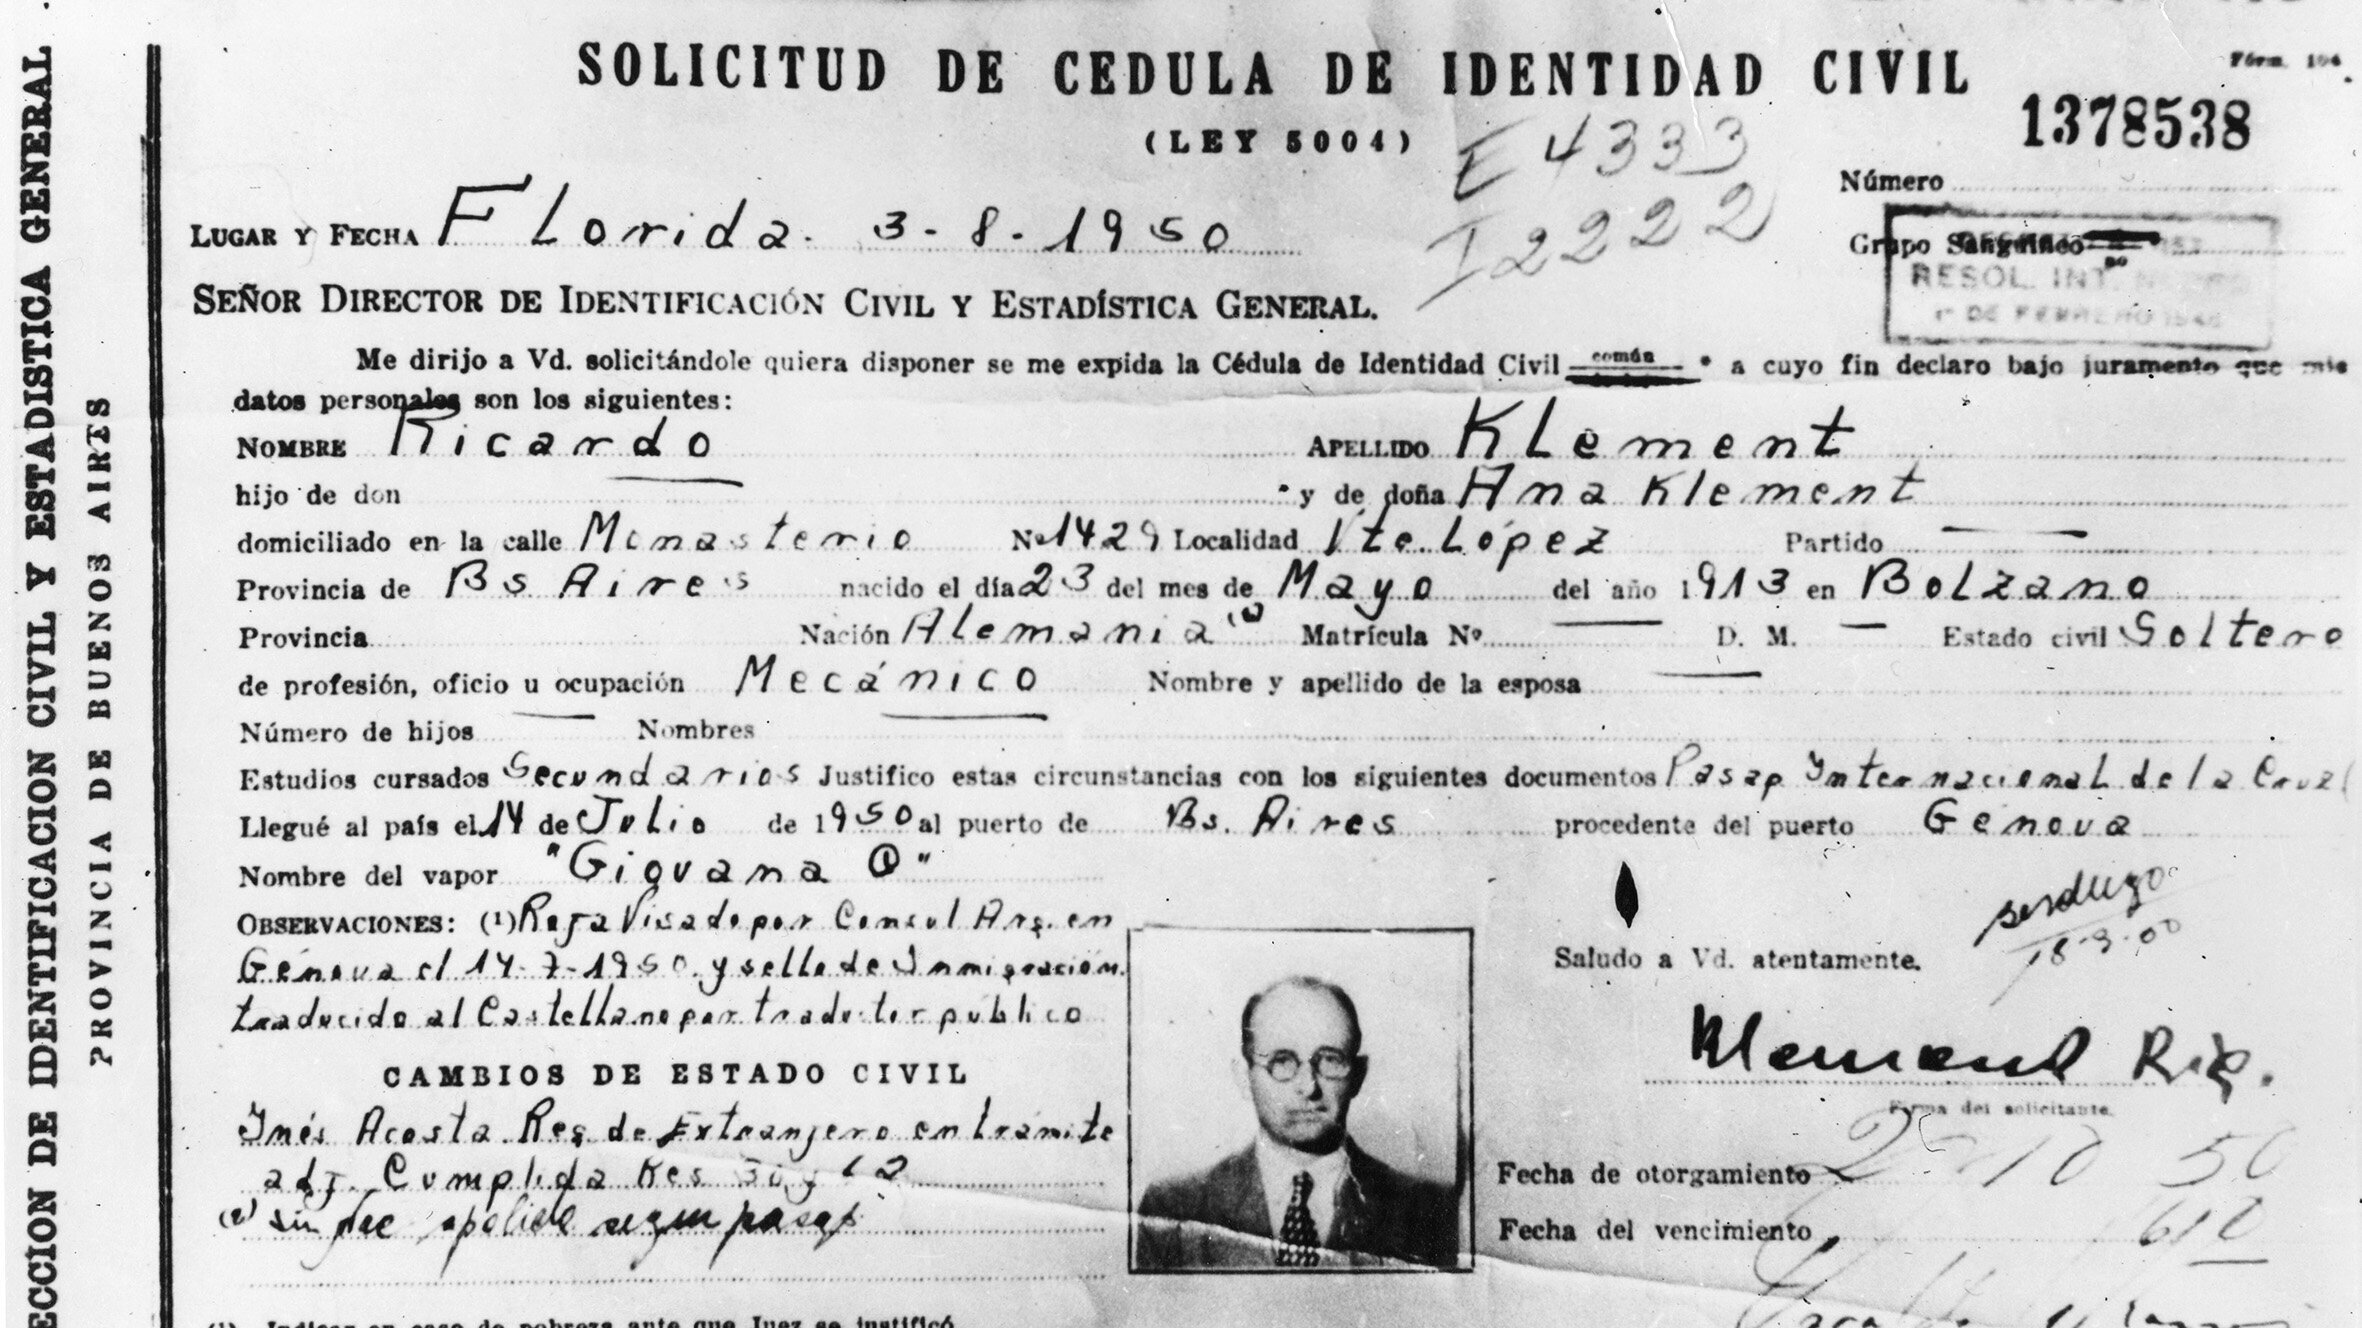 SOLICITUD DE CEDULA DE IDENTIDAD CIVIL
Fórm. 104
(LEY 5004)
1378538
E 4333
I 2222
Número
LUGAR Y FECHA Florida. 3-8-1950
Grupo Sanguíneo
RESOL. INT.
1º DE FEBRERO
SEÑOR DIRECTOR DE IDENTIFICACIÓN CIVIL Y ESTADÍSTICA GENERAL.
Me dirijo a Vd. solicitándole quiera disponer se me expida la Cédula de Identidad Civil común a cuyo fin declaro bajo juramento que mis
datos personales son los siguientes:
NOMBRE Ricardo APELLIDO Klement
hijo de don y de doña Ana Klement
domiciliado en la calle Monasterio Nº 1429 Localidad Vte. López Partido
Provincia de Bs Aires nacido el día 23 del mes de Mayo del año 1913 en Bolzano
Provincia Nación Alemania Matrícula Nº D. M. Estado civil Soltero
de profesión, oficio u ocupación Mecánico Nombre y apellido de la esposa
Número de hijos Nombres
Estudios cursados Secundarios Justifico estas circunstancias con los siguientes documentos Pasap Internacional de la Cruz
Llegué al país el 14 de Julio de 1950 al puerto de Bs. Aires procedente del puerto Génova
Nombre del vapor "Giovana
OBSERVACIONES: (1) Visado por Consul Arg. en
Génova el 14-7-1950. y sello de Inmigración.
traducido al Castellano por traductor público
Saludo a Vd. atentamente.
CAMBIOS DE ESTADO CIVIL
Klement
Firma del solicitante.
Inés Acosta. Reg. de Extranjero en trámite
adj. Cumplida
segun pasap
Fecha de otorgamiento 2 10 50
Fecha del vencimiento
(1) Indicar en caso de pobreza ante que Juez se justificó
ECCION DE IDENTIFICACION CIVIL Y ESTADISTICA GENERAL
PROVINCIA DE BUENOS AIRES